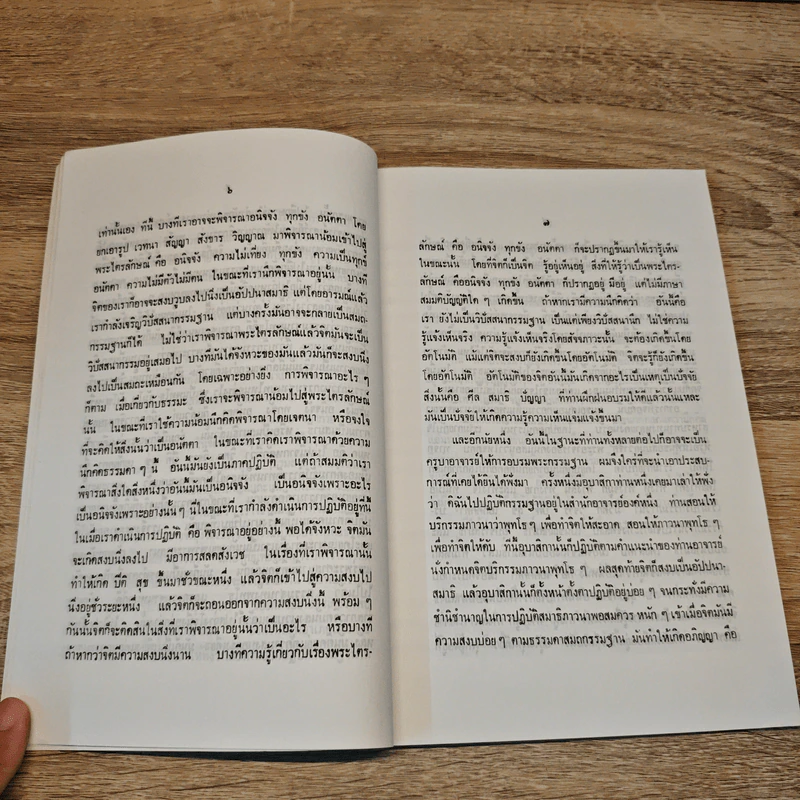 ๖
เท่านั้นเอง ทีนี้ บางทีเราอาจจะพิจารณาอนิจจัง ทุกขัง อนัตตา โดย
ยกเอารูป เวทนา สัญญา สังขาร วิญญาณ มาพิจารณาน้อมเข้าไปสู่
พระไตรลักษณ์ คือ อนิจจัง ความไม่เที่ยง ทุกขัง ความเป็นทุกข์
อนัตตา ความไม่มีตัวไม่มีตน ในขณะที่เรานึกพิจารณาอยู่นั้น บางที
จิตของเราก็อาจจะสงบวูบลงไปนิ่งเป็นอัปปนาสมาธิ แต่โดยอารมณ์แล้ว
เรากำลังเจริญวิปัสสนากรรมฐาน แต่บางครั้งมันอาจจะกลายเป็นสมถ-
กรรมฐานก็ได้ ไม่ใช่ว่าเราพิจารณาพระไตรลักษณ์แล้วจิตมันจะเป็น
วิปัสสนากรรมอยู่เสมอไป บางทีมันได้จังหวะของมันแล้วมันก็จะสงบนิ่ง
ลงไปเป็นสมถะเหมือนกัน โดยเฉพาะอย่างยิ่ง การพิจารณาอะไร ๆ
ก็ตาม เมื่อเกี่ยวกับธรรมะ ซึ่งเราจะพิจารณาน้อมไปสู่พระไตรลักษณ์
นั้น ในขณะที่เราใช้ความน้อมนึกคิดพิจารณาโดยเจตนา หรือจงใจ
ที่จะคิดให้สิ่งนั้นว่าเป็นอนัตตา ในขณะที่เราคิดเราพิจารณาด้วยความ
นึกคิดธรรมดา ๆ นี้ อันนี้มันยังเป็นภาคปฏิบัติ แต่ถ้าสมมติว่าเรา
พิจารณาสิ่งใดสิ่งหนึ่งว่าอันนี้มันเป็นอนิจจัง เป็นอนิจจังเพราะอะไร
เป็นอนิจจังเพราะอย่างนั้น ๆ นี่ในขณะที่เรากำลังดำเนินการปฏิบัติอยู่ที่นี้
ในเมื่อเราดำเนินการปฏิบัติ คือ พิจารณาอยู่อย่างนี้ พอได้จังหวะ จิตมัน
จะเกิดสงบนิ่งลงไป มีอาการสลดสังเวช ในเรื่องที่เราพิจารณานั้น
ทำให้เกิด ปีติ สุข ขึ้นมาชั่วขณะหนึ่ง แล้วจิตก็เข้าไปสู่ความสงบไป
นิ่งอยู่ชั่วระยะหนึ่ง แล้วจิตก็จะถอนออกจากความสงบนิ่งนี้ พร้อม ๆ
กันนั้นจิตก็จะตัดสินในสิ่งที่เราพิจารณาอยู่นั้นว่าเป็นอะไร หรือบางที
ถ้าหากว่าจิตมีความสงบนิ่งนาน บางทีความรู้เกี่ยวกับเรื่องพระไตร-
๗
ลักษณ์ คือ อนิจจัง ทุกขัง อนัตตา ก็จะปรากฏขึ้นมาให้เรารู้เห็น
ในขณะนั้น โดยที่จิตก็เป็นจิต รู้อยู่เห็นอยู่ สิ่งที่ให้รู้ว่าเป็นพระไตร-
ลักษณ์ คืออนิจจัง ทุกขัง อนัตตา ก็ปรากฏอยู่ มีอยู่ แต่ไม่มีภาษา
สมมติบัญญัติใด ๆ เกิดขึ้น ถ้าหากเรามีความนึกคิดว่า อันนี้คือ
เรา ยังไม่เป็นวิปัสสนากรรมฐาน เป็นแต่เพียงวิปัสสนานึก ไม่ใช่ความ
รู้แจ้งเห็นจริง ความรู้แจ้งเห็นจริงโดยสัจจภาวะนั้น จะต้องเกิดขึ้นโดย
อัตโนมัติ แม้แต่จิตจะสงบก็ยังเกิดขึ้นโดยอัตโนมัติ จิตจะรู้ก็ยังเกิดขึ้น
โดยอัตโนมัติ อัตโนมัติของจิตอันนี้มันเกิดจากอะไรเป็นเหตุเป็นปัจจัย
สิ่งนั้นคือ ศีล สมาธิ ปัญญา ที่ท่านฝึกฝนอบรมให้ดีแล้วนั้นแหละ
มันเป็นปัจจัยให้เกิดความรู้ความเห็นแจ่มแจ้งขึ้นมา
และอีกนัยหนึ่ง อันนี้ในฐานะที่ท่านทั้งหลายต่อไปก็อาจจะเป็น
ครูบาอาจารย์ให้การอบรมพระกรรมฐาน ผมจึงใคร่ที่จะนำเอาประสบ-
การณ์ที่เคยได้ยินได้ฟังมา ครั้งหนึ่งมีอุบาสิกาท่านหนึ่งเคยมาเล่าให้ฟัง
ว่า ดิฉันไปปฏิบัติกรรมฐานอยู่ในสำนักอาจารย์องค์หนึ่ง ท่านสอนให้
บริกรรมภาวนาว่าพุทโธ ๆ เพื่อทำจิตให้สะอาด สอนให้ภาวนาพุทโธ ๆ
เพื่อทำจิตให้ดับ ทีนี้อุบาสิกานั้นก็ปฏิบัติตามคำแนะนำของท่านอาจารย์
นั่งกำหนดจิตบริกรรมภาวนาพุทโธ ๆ ผลสุดท้ายจิตก็สงบเป็นอัปปนา-
สมาธิ แล้วอุบาสิกานั้นก็ตั้งหน้าตั้งตาปฏิบัติอยู่บ่อย ๆ จนกระทั่งมีความ
ชำนิชำนาญในการปฏิบัติสมาธิภาวนาพอสมควร หนัก ๆ เข้าเมื่อจิตมันมี
ความสงบบ่อย ๆ ตามธรรมดาสมถกรรมฐาน มันทำให้เกิดอภิญญา คือ